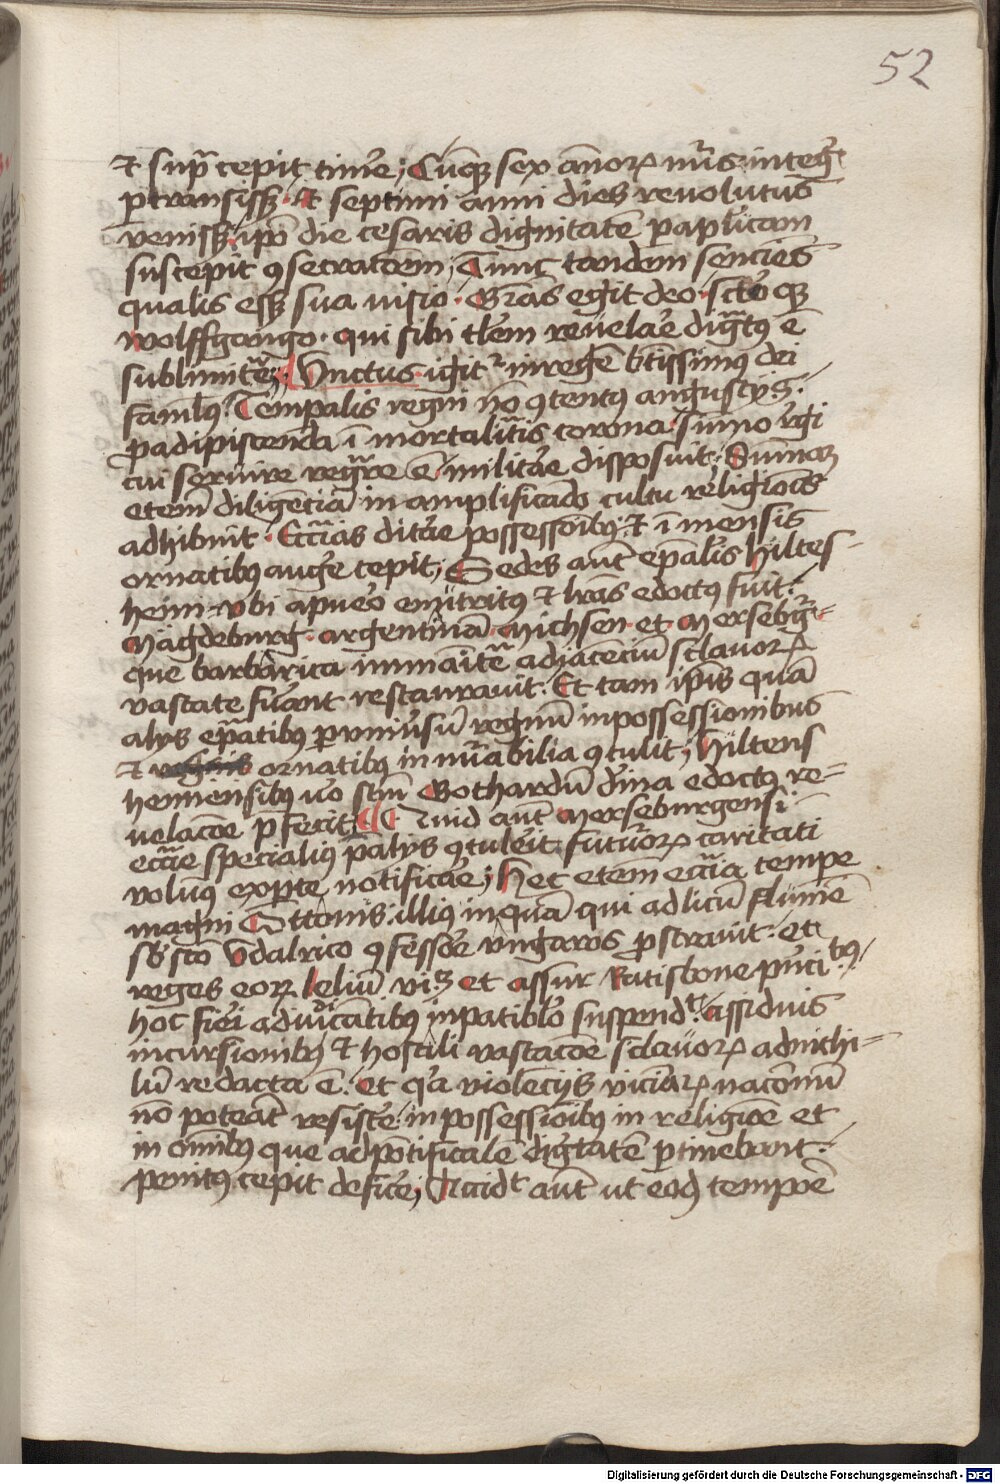 52
⁊ supͣ cepit time͛; Cūq̨ sex annoꝝ nūs integͤ
ptransissꝫ. Et septimi anni dies reuolutus
venissꝫ ipō die cesaris dignitatē p apl'icam
suscepit ꝯsecracōem; Tunc tandem sencies
qualis essꝫ sua uisio. Gr̄as egit deo. sctō qꝫ
wolffgango. qui sibi tl'em reuelar̄e digt9 ē
sublimitatē; Vnctus igit᷑ in regē bt̄issim9 dei
famul9. Tempalis regni nō ꝯtent9 angustijs.
p adipiscenda ī mortalitͣis corona. sūmo rͤgi
cui seruire regnͣre ē. militar̄e disposuit. Sūmaꝫ
etem̄ diligēciā in amplificādo cultu religionis
adhibuit. Ecc̄ias ditar̄e possessōib9. ⁊ ī mensis
ornatib9 auge͛ cepit; Sedes aut̄ ep̄alēs hiltes-
heim. vbi a puēo enutrit9 ⁊ lr̄as edoct9 fuit.
Magdeburg. argentinā. Michsen. et Merseb͛g-
que barbarica inmaitͣe adiacenciū sclauoꝝ
vastate fu͛ant restaurauit. Et tam ip̄is quā
alijs ep̄atib9 p vniu͛sū regnū in possessionibus
⁊ ornatibus in nūͣabilia ꝯtulit; Hiltens
hemensib9 u͛o sctm̄ Gothardū diͥna edoct9 re-
uelacōe p̄fecit; Quid aut̄ Merseburgensi
ecc̄ie specialius p̄ alijs ꝯtule͛it. futuroꝝ caritati
volum9 ex pte notificar̄e; Hec etem̄ ecc̄ia tempe
magni Ottonis. illius in quā qui ad licū flumē
sb scō Vdalrico ꝯfessōre vngaros pstrauit. et
reges eoꝝ leliū viꝫ et assur Ratisbone p̄nci bus
hoc fieͥ adiudicātib9 in patibl'o suspendͭ. assiduis
incursionib9 ⁊ hostili vastacōe sclauoꝝ ad nichi-
lū redacta ē. et qͥa violēcijs viciͣnaꝝ nacōnū
nō poterāt resiste͛. in possessiōib9 in religiōe et
in omībus que ad pontificalē digͥtatē ptinebant.
penitus cepit defice͛; Accidͭ aut̄ ut eodꝫ tempōe
Digitalisierung gefördert durch die Deutsche Forschungsgemeinschaft - DFG